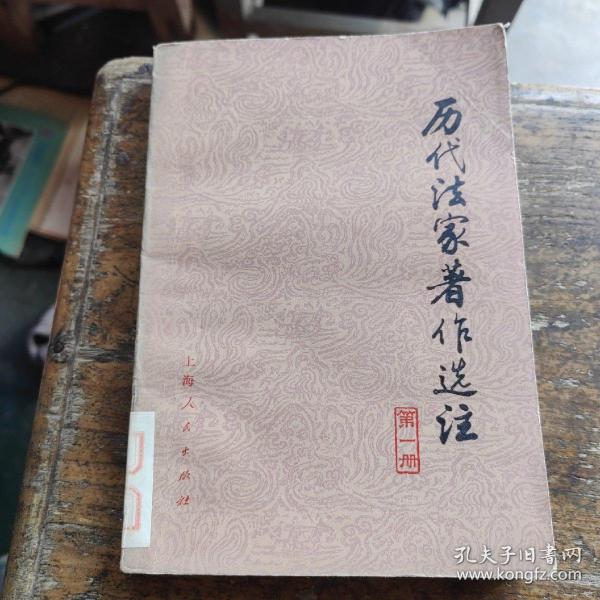 历代法家著作选注
第一册
上海人民出版社
孔夫子旧书网
www.kongfz.com